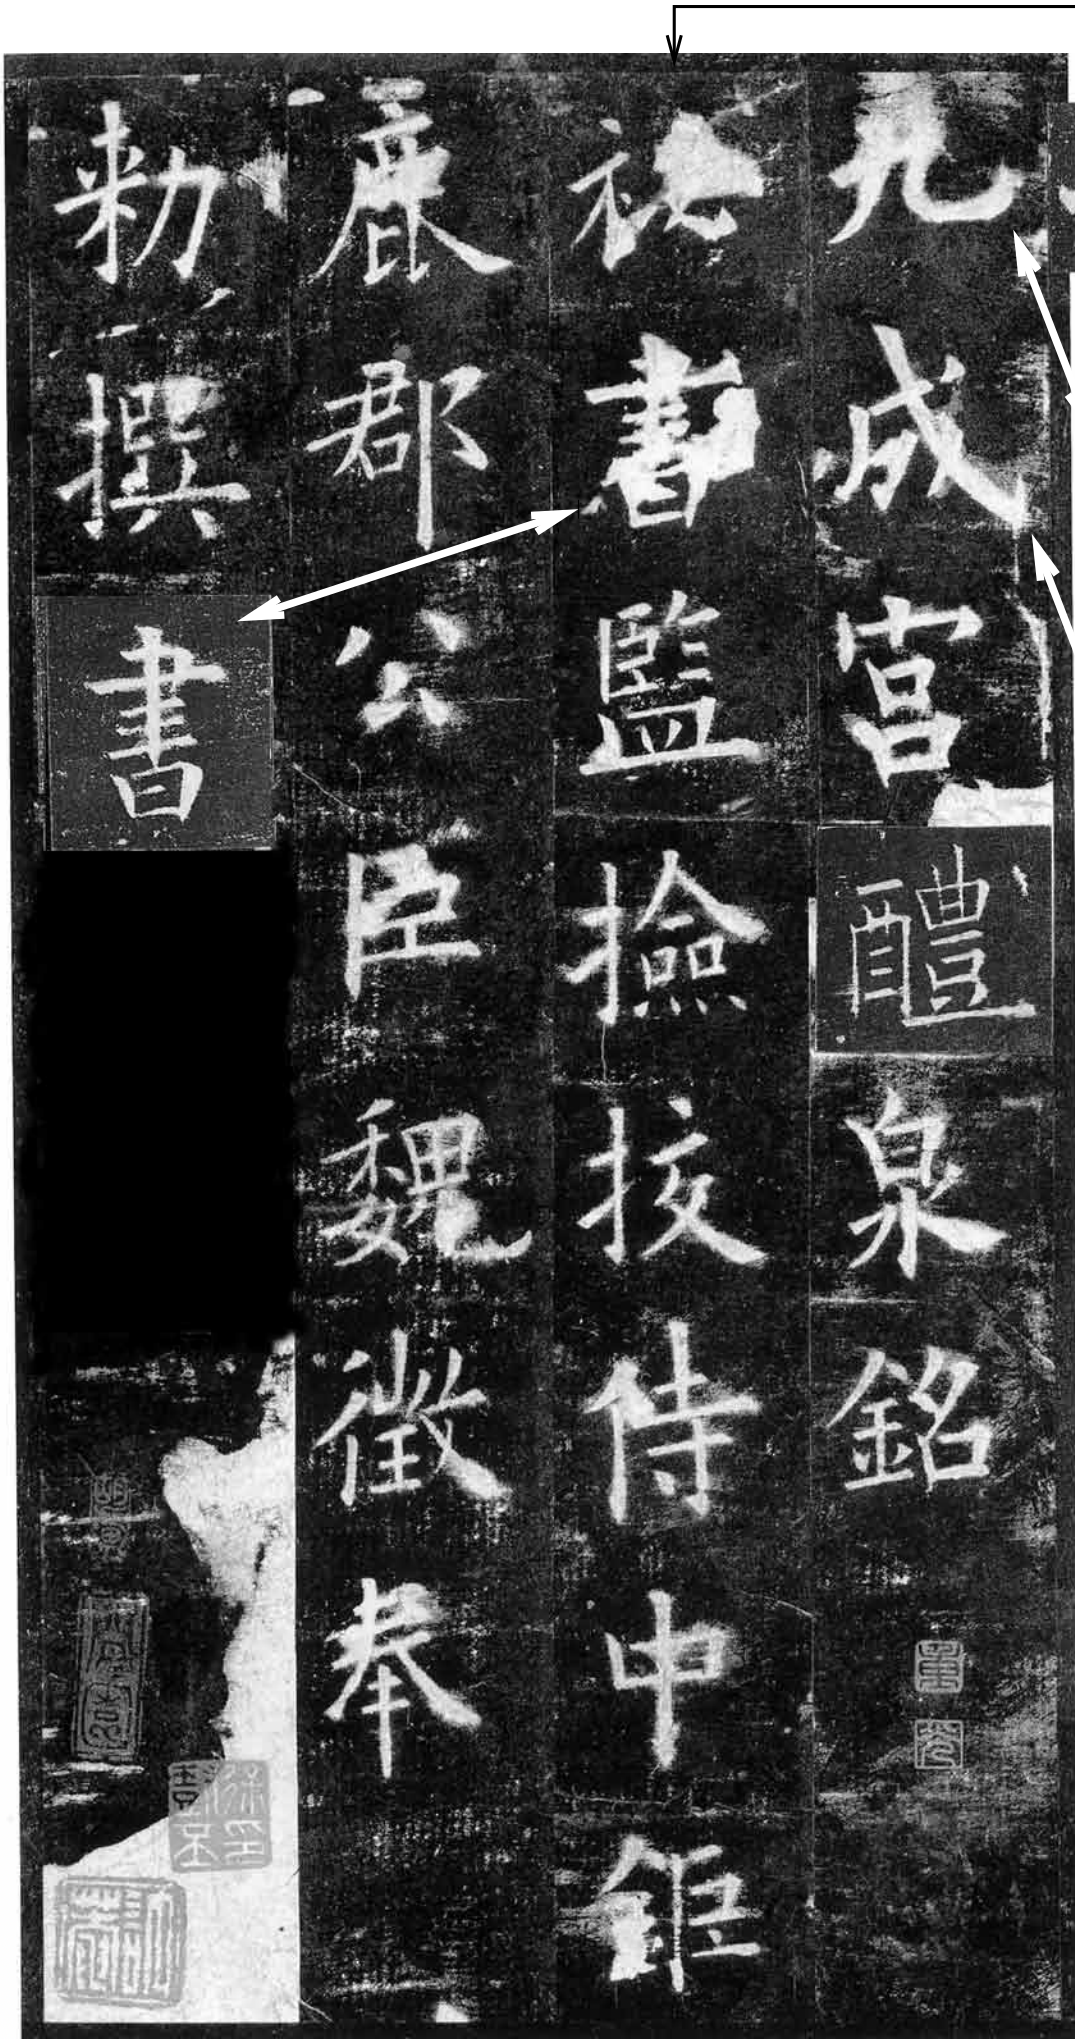 九成宮醴泉銘
秘書監撿挍侍中鉅
鹿郡公臣魏徵奉
勑撰書